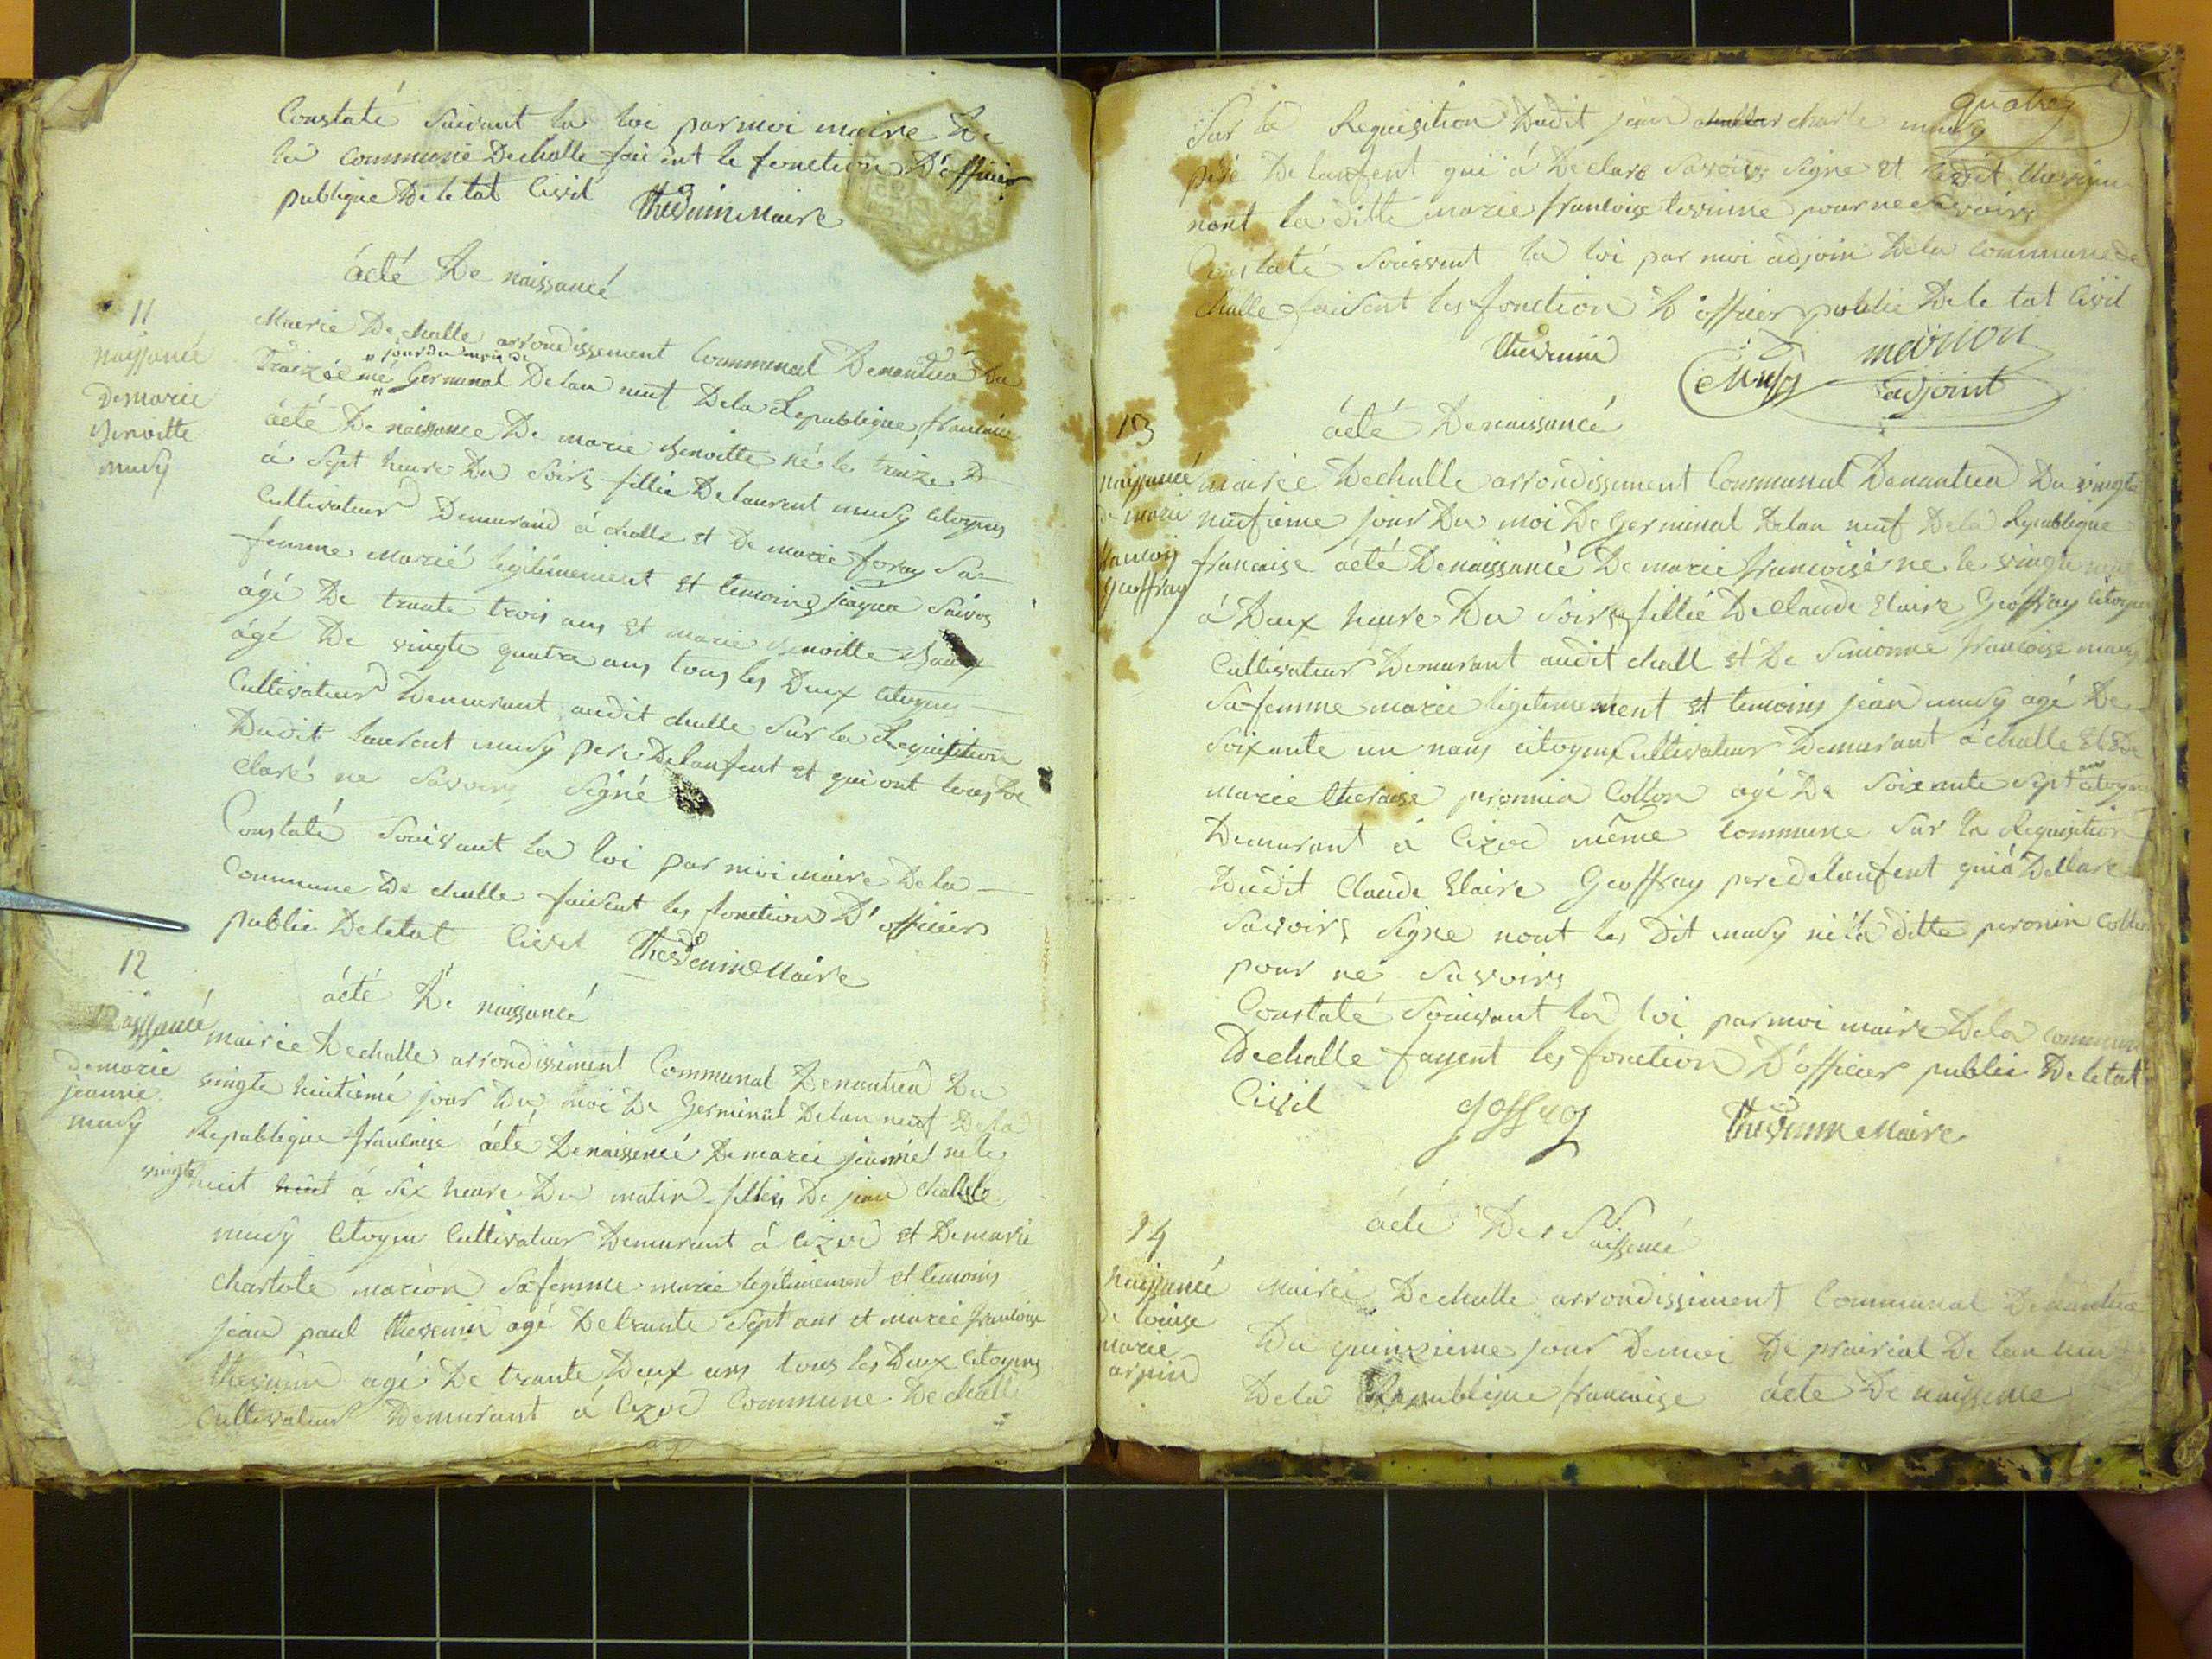 Constaté Suivant la loi par moi maire De
la commune Dechalle faisent le fonction D'officier
publique De letat Civil Thevenin Maire
acté De naissancé
11
naissancé
De marie
benoitte
mudy
Mairie De challe arrondissement Communal Denantua Du
Traizé me " jour du mois de " Germinal Delan neuf Dela Republique francaise
acté De naissance De marie benoitte né le traize
á Sept heure Du Soirs fillie De laurent mudy citoyen
Cultivateur Demurand á challe et De marie foray Sa
femme marié légitimement et temoins jaque
agé De trante trois ans et marie benoitte
ágé De vingte quatre ans tous les Deux citoyens
Cultivateur Demeurant audit challe Sur la Requisition
Dudit laurent mudy pere De lanfent et qui ont tous De
claré ne Savoirs Signé
Constaté Souivant la loi par moi maire De la
Commune De challe faisent les fonction D'officiers
public De letat Civil Thevenin Maire
12
acté De naissancé
naissancé
de marie
jeannie
mudy
mairie De challe arrondissiment Communal Denantua Du
vingte huitiemé jour Du moi De Germinal Delan neuf Dela
Republique francaise acté Denaissencé De marie jeannié né le
vingte huit huit á Six heure Du matin fillies De jean charle
mudy Citoyen Cultivateur Demurant á Cizod et De marie
charlote marion Sa femme marie legitimement et temoins
jean paul thevenin agé De trante Sept ans et marie francoise
thevenin agé De trante Deux ans tous les Deux Citoyens
Cultivateur Demurant á Cizod Commune De challe
quatre
Sur la Requisition Dudit jean charle mudy
péré De lanfent qui á Declare Savoirs Signe et ledit thevenin
nont la ditte marie francoise tevenine pour ne Savoirs
Constaté Souivent la loi par moi adjoin Dela commune de
challe faisent les fonction D'officier public De le tat Civil
thevenin Mudy marion
adjoint
13
acté De naissancé
naissancé
de marie
francois
geoffray
mairie De challe arrondissiment Communal Denantua Du vingte
neufieme jour Du moi De Germinal Delan neuf De la Republique
francaise acté Denaissancé De marie francoisé ne le vingte neuf
á Deux heure Du Soirs fillié De Claude Claire Geoffray Citoyen
Cultivateur Demurant audit chall et De Simonne francoise mudy
Sa femme marie ligitimement et temoins jean mudy agé De
Soixante un nans citoyen Cultivateur Demurant á challe et De
marie theraise peronnin Collon agé De Soixente Sept ans Citoyen
Demurant á Cizod même Commune Sur la Requisition
Dudit Claude Claire Geoffray pere de lanfent qui á Declare
Savoirs Signe nont les Dit mudy ni la ditte peronin Collon
pour né Savoirs
Constaté Souivant la loi par moi maire Dela commune
De challe fayent les fonction D'officier public De letat
Civil goffray Thevenin Maire
14
acté De Naissencé
naissancé
de louise
marie
arpin
mairie De challe arrondissiment Communal Denantua
Du quinzieme jour De moi De prairial De lan neuf
De la Republique francaise acte De naissence